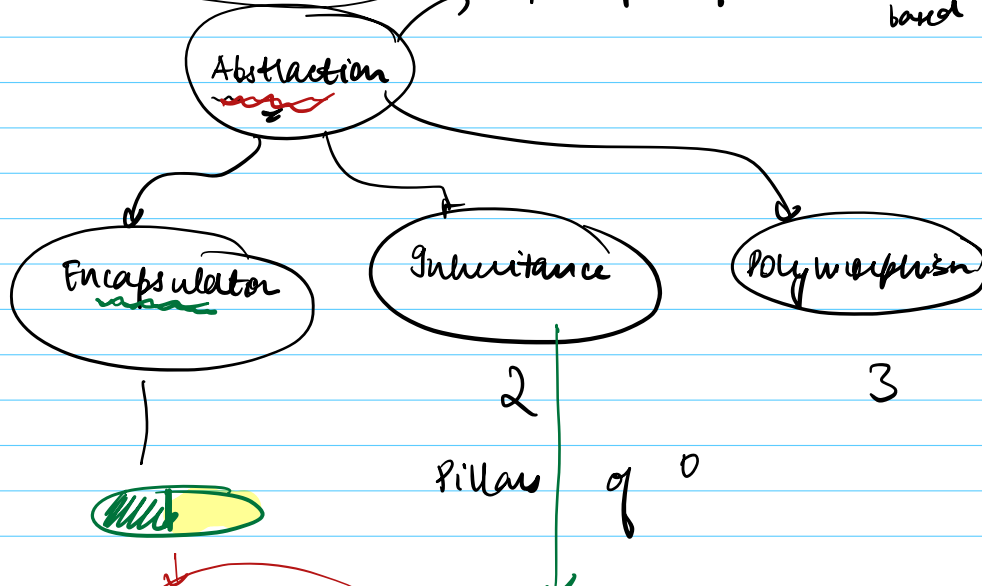 based
Abstraction
Encapsulation Inheritance Polymorphism
2 3
Pillars of O